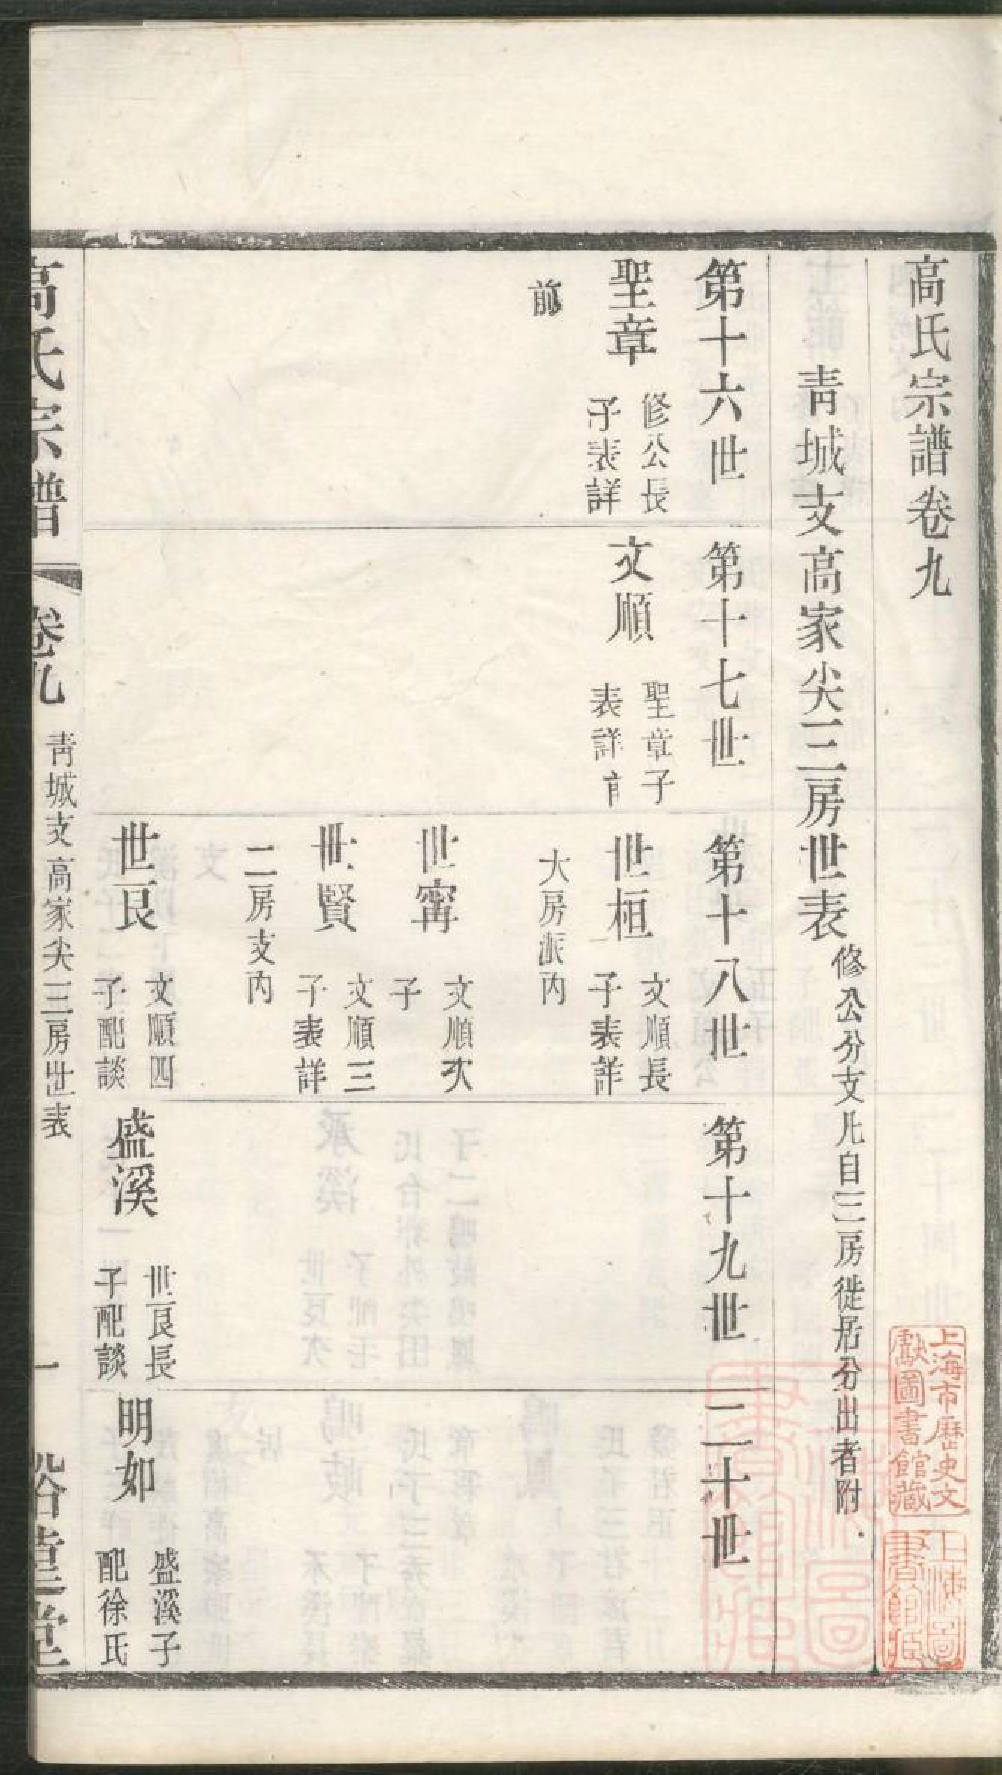 高氏宗譜卷九
青城支高家尖三房世表 修公分支凡自三房徙居分出者附
第十六世
聖章 修公長
子表詳
前
第十七世
文順 聖章子
表詳前
第十八世
世桓 文順長
子表詳
大房派内
世寗 文順次
子
世賢 文順三
子表詳
二房支内
世良 文順四
子配談
第十九世
盛溪 世良長
子配談
二十世
明如 盛溪子
配徐氏
高氏宗譜 卷九 青城支高家尖三房世表 一 裕荁堂
上海市歷史文
獻圖書館藏
上海圖
書館藏